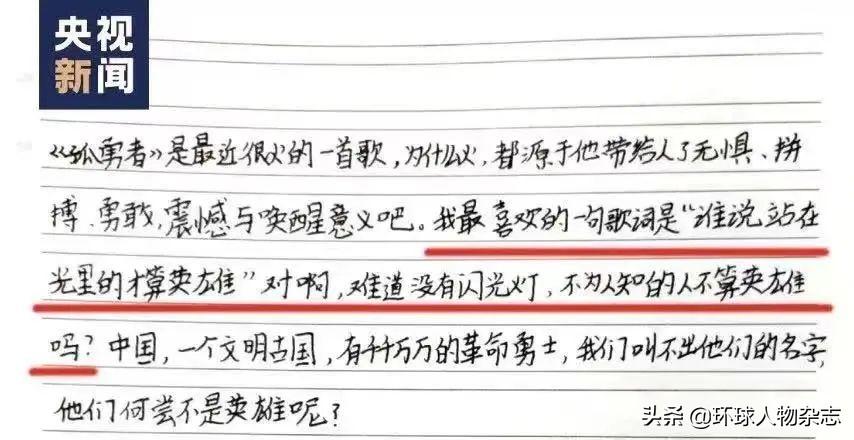 央视
新闻
《孤勇者》是最近很火的一首歌，为什么火，都源于他带给人了无惧、拼
搏、勇敢，震憾与唤醒意义吧。我最喜欢的一句歌词是“谁说站在
光里的才算英雄”对啊，难道没有闪光灯，不为人知的人不算英雄
吗？中国，一个文明古国，有千千万万的革命勇士，我们叫不出他们的名字，
他们何尝不是英雄呢？
头条 @环球人物杂志